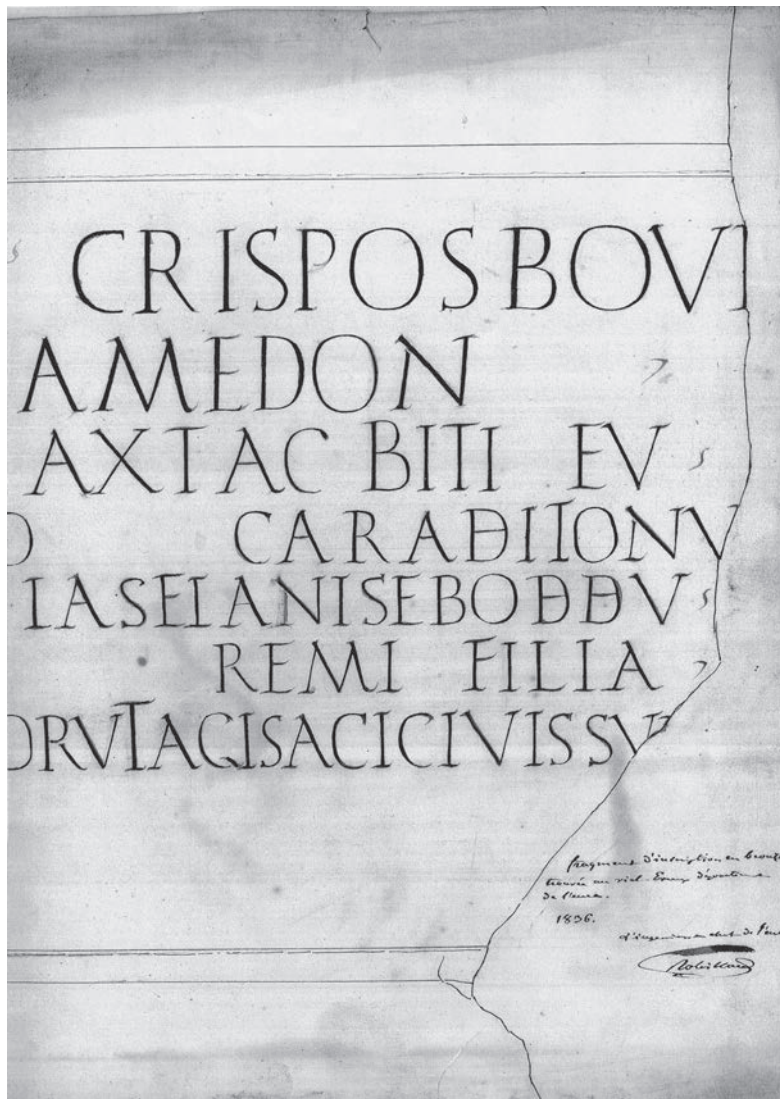 CRISPOS BOVI
AMEDON
AXTAC BITI EV
O CARAĐITONV
IASEIANISEBOĐĐV
REMI FILIA
ORVTAGISACICIVISSV
fragment d'inscription en bronze
trouvée au viel-Evreux département
de l'eure.
1836.
L'ingénieur en chef de l'eure